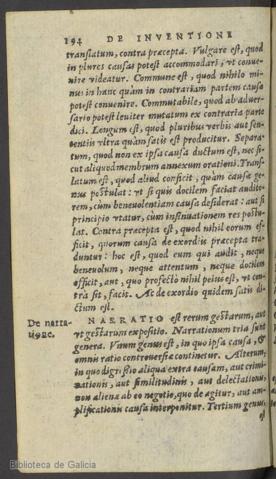 194 DE INVENTIONE
translatum, contra præcepta. Vulgare est, quod
in plures causas potest accommodari, vt conue-
nire videatur. Commune est, quod nihilo mi-
nus in hanc quàm in contrariam partem causæ
potest conuenire. Commutabile, quod ab aduer-
sario potest leuiter mutatum ex contraria parte
dici. Longum est, quod pluribus verbis aut sen-
tentiis vltra quàm satis est producitur. Separa-
tum, quod non ex ipsa causa ductum est, nec si-
cut aliquod membrum annexum orationi. Trans-
latum est, quod aliud conficit, quàm causæ ge-
nus postulat: vt si quis docilem faciat audito-
rem, cùm beneuolentiam causa desideret: aut si
principio vtatur, cùm insinuationem res postu-
lat. Contra præcepta est, quod nihil eorum ef-
ficit, quorum causa de exordiis præcepta tra-
duntur: hoc est, quod eum qui audit, neque
beneuolum, neque attentum, neque docilem
efficit, aut, quo profectò nihil peius est, vt con-
trà sit, facit. Ac de exordio quidem satis di-
ctum est.
De narra-
tione.
NARRATIO est rerum gestarum, aut
vt gestarum expositio. Narrationum tria sunt
genera. Vnum genus est, in quo ipsa causa, &
omnis ratio controuersiæ continetur. Alterum,
in quo digressio aliqua extra causam, aut crimi-
nationis, aut similitudinis, aut delectationis
non aliena ab eo negotio, quo de agitur, aut am-
plificationis causa interponitur. Tertium genus
Biblioteca de Galicia